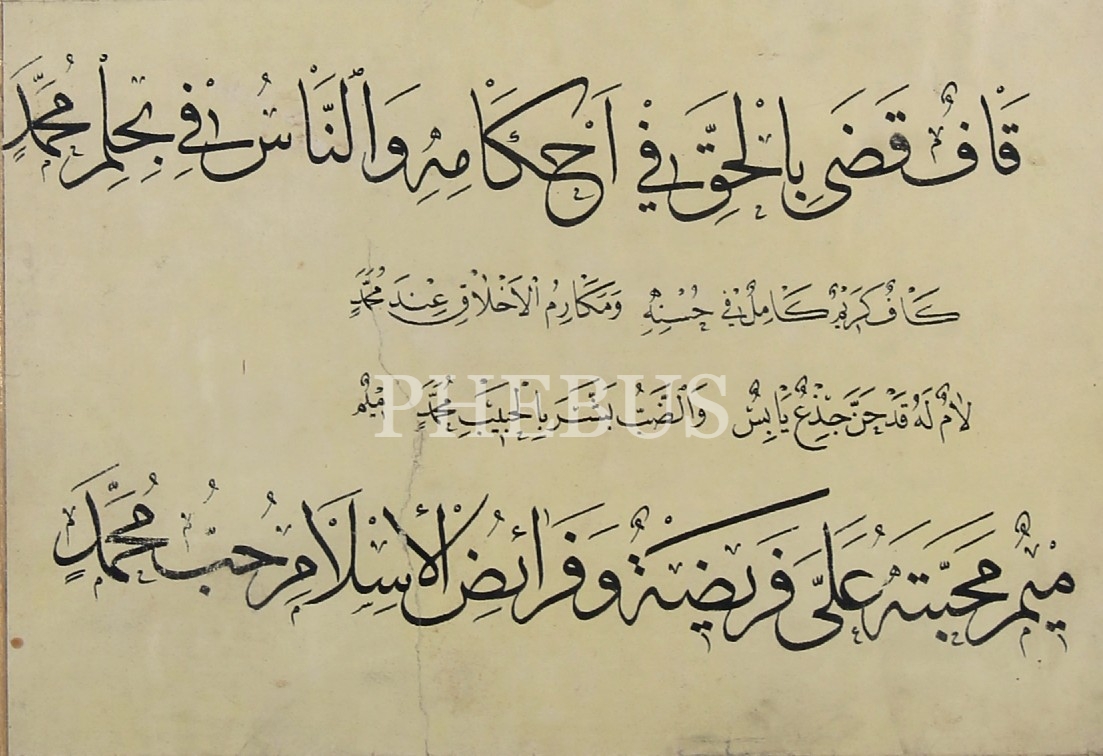 قَافٌ قَضَى بِالْحَقِّ فِي أَحْكَامِهِ وَالنَّاسُ فِي حِلْمِ مُحَمَّدٍ
كَافٌ كَرِيمٌ كَامِلٌ فِي حُسْنِهِ وَمَكَارِمُ الْأَخْلَاقِ عِنْدَ مُحَمَّدٍ
PHEBUS
لَامٌ لَهُ قَدْ حَنَّ جِذْعٌ يَابِسٌ وَالضَّبُّ بَشَّرَ بِالْحَبِيبِ مُحَمَّدٍ مِيمٌ
مِيمٌ مَحَبَّتُهُ عَلَيَّ فَرِيضَةٌ وَفَرَائِضُ الْإِسْلَامِ حُبُّ مُحَمَّدٍ